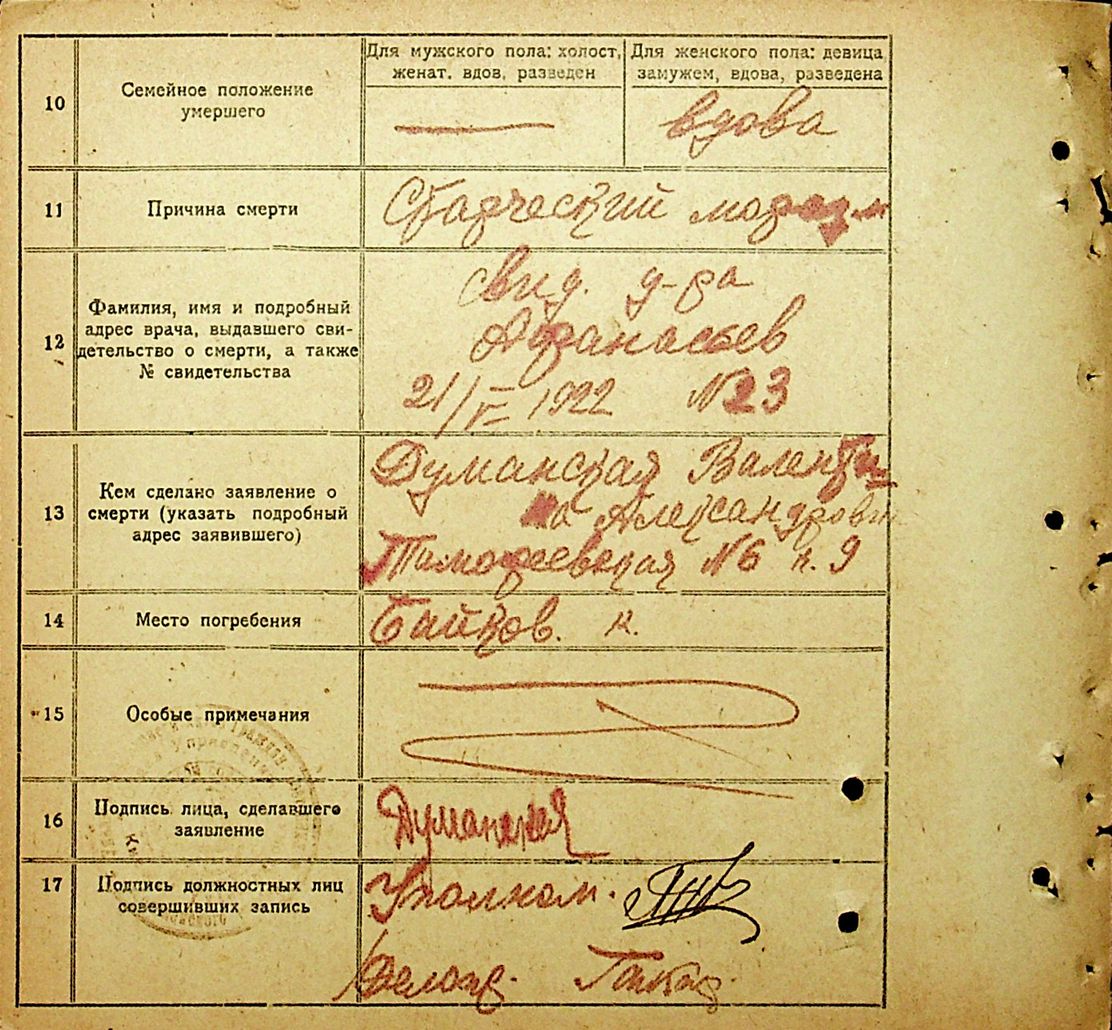 Для мужского пола: холост,
женат. вдов, разведен
Для женского пола: девица
замужем, вдова, разведена
10
Семейное положение
умершего
вдова
11
Причина смерти
Старческий маразм
12
Фамилия, имя и подробный
адрес врача, выдавшего сви-
детельство о смерти, а также
№ свидетельства
свид. д-ра
Афанасьев
21/V 1922 N23
13
Кем сделано заявление о
смерти (указать подробный
адрес заявившего)
Думанская Валенти
на Александровн
Тимофеевская N6 к. 9
14
Место погребения
Байков. к.
15
Особые примечания
16
Подпись лица, сделавшего
заявление
Думанская
17
Подпись должностных лиц
совершивших запись
Уполном.
Делопр.